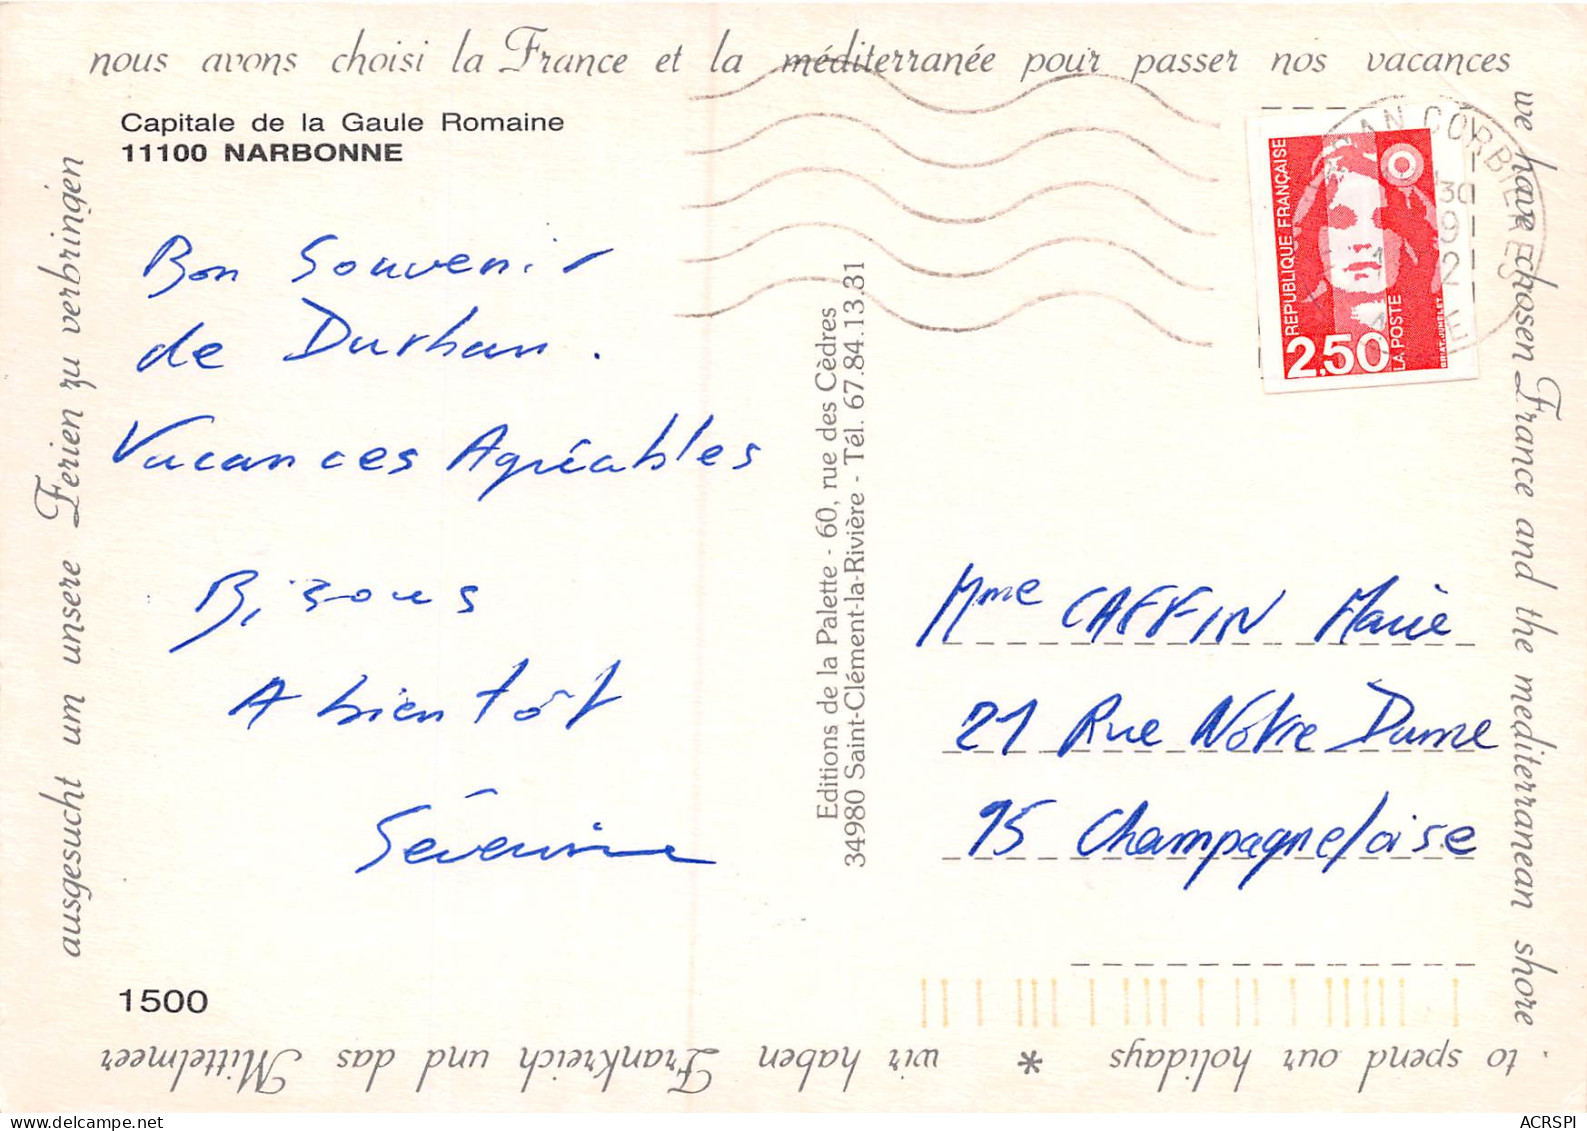 nous avons choisi la France et la méditerranée pour passer nos vacances
we have chosen France and the mediterranean shore
to spend our holidays * wir haben Frankreich und das Mittelmeer
ausgesucht um unsere Ferien zu verbringen
Capitale de la Gaule Romaine
11100 NARBONNE
Bon Souvenir
de Durban.
Vacances Agréables
Bisous
A bientôt
Séverine
1500
Editions de la Palette - 60, rue des Cèdres
34980 Saint-Clément-la-Rivière - Tél. 67.84.13.31
REPUBLIQUE FRANÇAISE
2,50
LA POSTE
CORBIERES
30
9
Mme CAFFIN Marie
21 Rue Notre Dame
95 Champagne/oise
ACRSPI